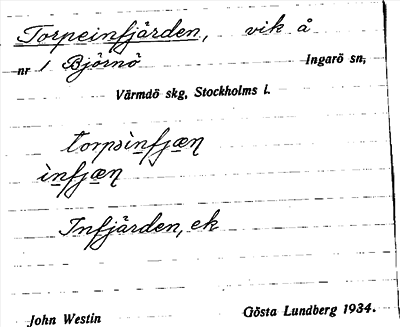 Torpeinfjärden, vik å
nr 1 Björnö Ingarö sn,
Värmdö skg, Stockholms l.
torpsinfjæɳ
infjæɳ
Infjärden, ek
John Westin Gösta Lundberg 1934.